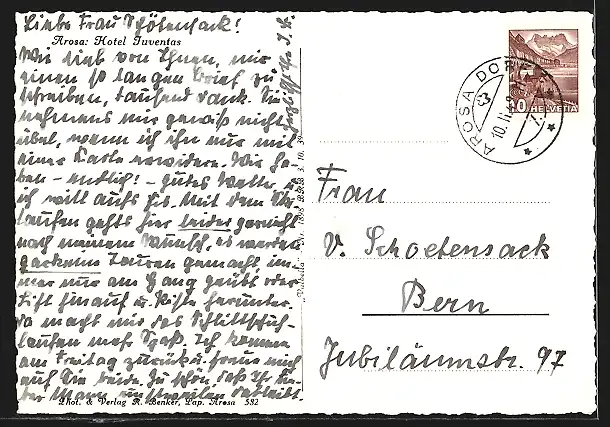 Liebe Frau Schötensack!
Arosa: Hotel Juventas
Wie lieb von Ihnen, mir
einen so langen Brief zu
schreiben, tausend Dank. Sie
nehmens mir gewiss nicht
übel, wenn ich ihn nur mit
einer Karte erwidere. Wir ha-
ben - endlich! - gutes Wetter, u.
ich will aufs Eis. Mit dem Ski-
laufen gehts hier leider garnicht
nach meinem Wunsch, es werden
gar keine Touren gemacht, im-
mer nur am Hang geübt oder
Lift hinauf u. Piste herunter.
Da macht mir das Schlittschuh-
laufen mehr Spaß. Ich komme
am Freitag zurück u. freue mich
auf Sie beide. Zu schön, daß Ihr lie-
ber Mann einstweilen dableibt.
Phot. & Verlag R. Benker, Pap. Arosa 532
AROSA DORF
10.II.48
10 HELVETIA
Frau
V. Schoetensack
Bern
Jubiläumstr. 97